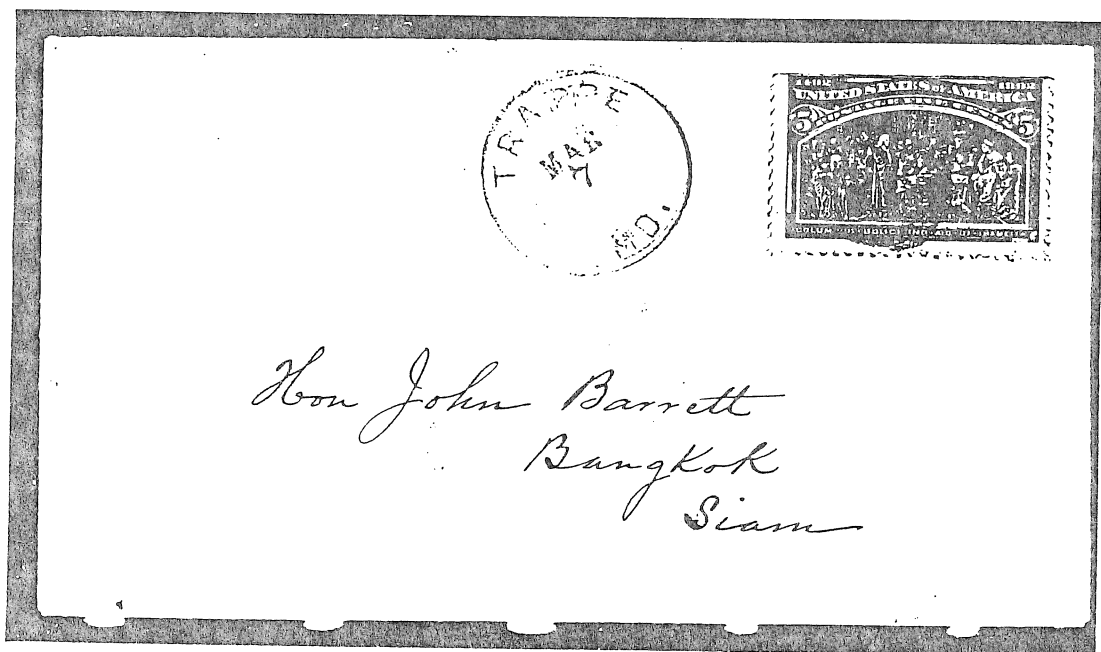 TRAPPE
MAR
7
MD.
UNITED STATES OF AMERICA
5 5
Hon John Barrett
Bangkok
Siam